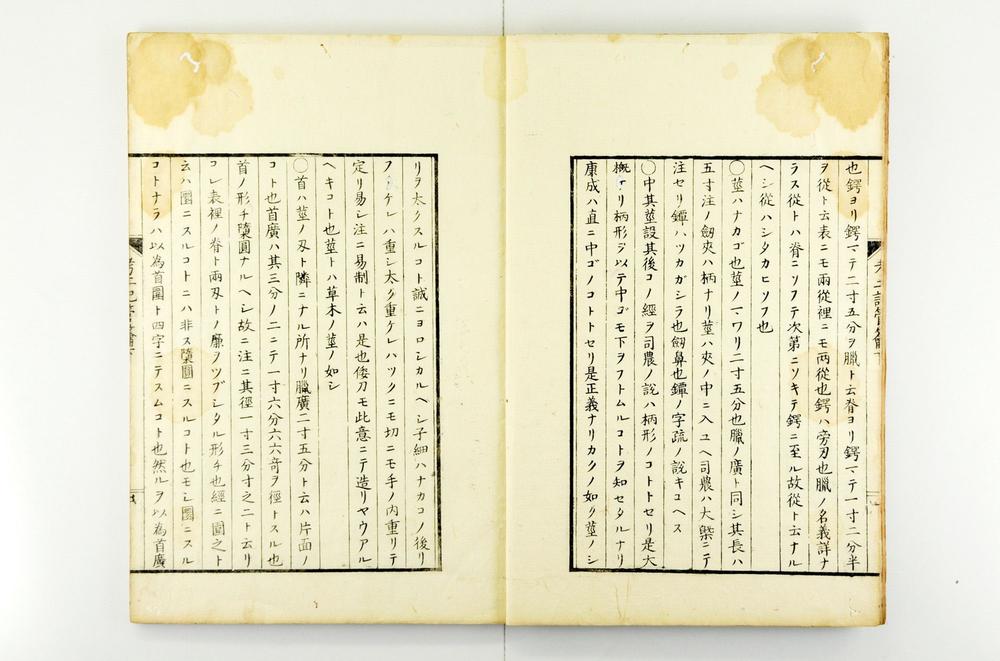 也鍔ヨリ鍔マテ二寸五分ヲ臘ト云脊ヨリ鍔マテ一寸二分半
ヲ從ト云表ニモ兩從裡ニモ两從也鍔ハ旁刃也臘ノ名義詳ナ
ラス從トハ脊ニソフテ次第ニソキテ鍔ニ至ル故從ト云ナル
ヘシ從ハシタカヒソフ也
〇莖ハナカゴ也莖ノマワリ二寸五分也臘ノ廣ト同シ其長ハ
五寸注ノ劔夾ハ柄ナリ莖ハ夾ノ中ニ入ユヘ司農ハ大槩ニテ
注セリ鐔ハツカガシラ也劔鼻也鐔ノ字疏ノ說キコヘス
〇中其莖設其後コノ經ヲ司農ノ說ハ柄形ノコトトセリ是大
概ナリ柄形ヲ以テ中ゴモ下ヲフトムルコトヲ知セタルナリ
康成ハ直ニ中ゴノコトトセリ是正義ナリカクノ如ク莖ノシ
リヲ太クスルコト誠ニヨロシカルヘシ子細ハナカコノ後リ
フトケレハ重シ太ク重ケレハツクニモ切ニモ手ノ内重リテ
定リ易シ注ニ易制ト云ハ是也倭刀モ此意ニテ造リヤウアル
ヘキコト也莖トハ草木ノ莖ノ如シ
〇首ハ莖ノ刄ト隣ニナル所ナリ臘廣二寸五分ト云ハ片面ノ
コト也首廣ハ其三分ノ二ニテ一寸六分六六奇ヲ徑トスル也
首ノ形チ隋圓ナルヘシ故ニ注ニ其徑一寸三分寸之二ト云リ
コレ表裡ノ脊ト兩刄トノ廉ヲツブシタル形チ也經ニ圍之ト
云ハ圓ニスルコトニハ非ス隋圓ニスルコト也モシ圓ニスル
コトナラハ以為首圍ト四字ニテスムコト也然ルヲ以為首廣